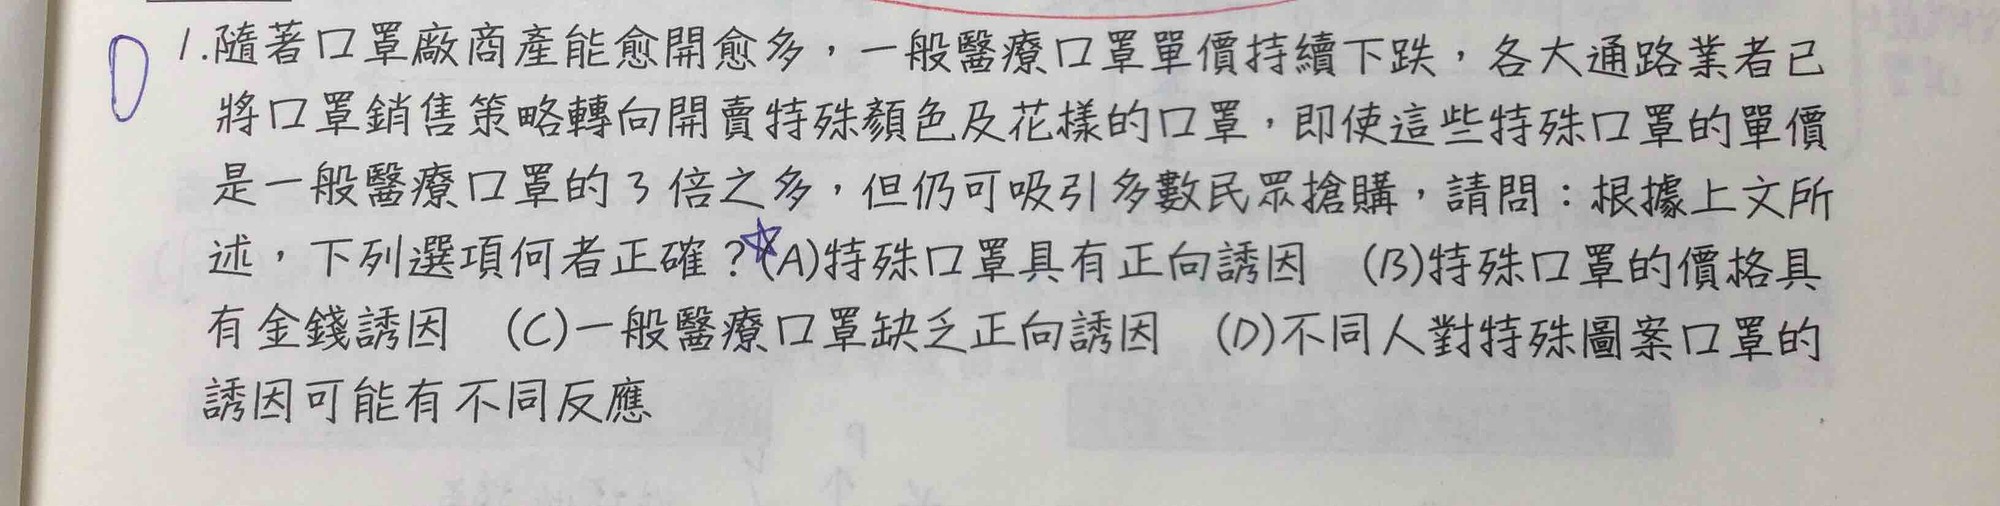 D 1.隨著口罩廠商產能愈開愈多，一般醫療口罩單價持續下跌，各大通路業者已
將口罩銷售策略轉向開賣特殊顏色及花樣的口罩，即使這些特殊口罩的單價
是一般醫療口罩的3倍之多，但仍可吸引多數民眾搶購，請問：根據上文所
述，下列選項何者正確？☆(A)特殊口罩具有正向誘因 (B)特殊口罩的價格具
有金錢誘因 (C)一般醫療口罩缺乏正向誘因 (D)不同人對特殊圖案口罩的
誘因可能有不同反應